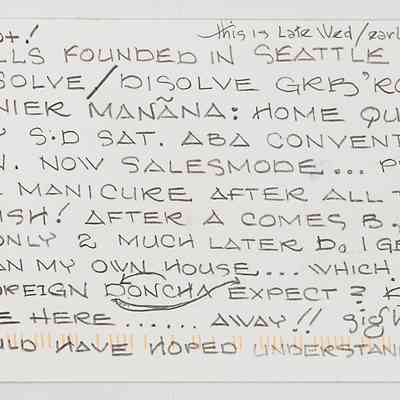 this is Late Wed/earl
ot!
LLS FOUNDED IN SEATTLE
SOLVE/DISOLVE GRB'RO
NIER MAÑANA: HOME QU
S.D SAT. ABA CONVENT
N. NOW SALESMODE... P
MANICURE AFTER ALL T
ISH! AFTER A COMES B.
ONLY 2 MUCH LATER D. I GE
AN MY OWN HOUSE... WHICH.
OREIGN DONCHA EXPECT?
E HERE...... AWAY!! gigh
ULD HAVE HOPED UNDERSTAN